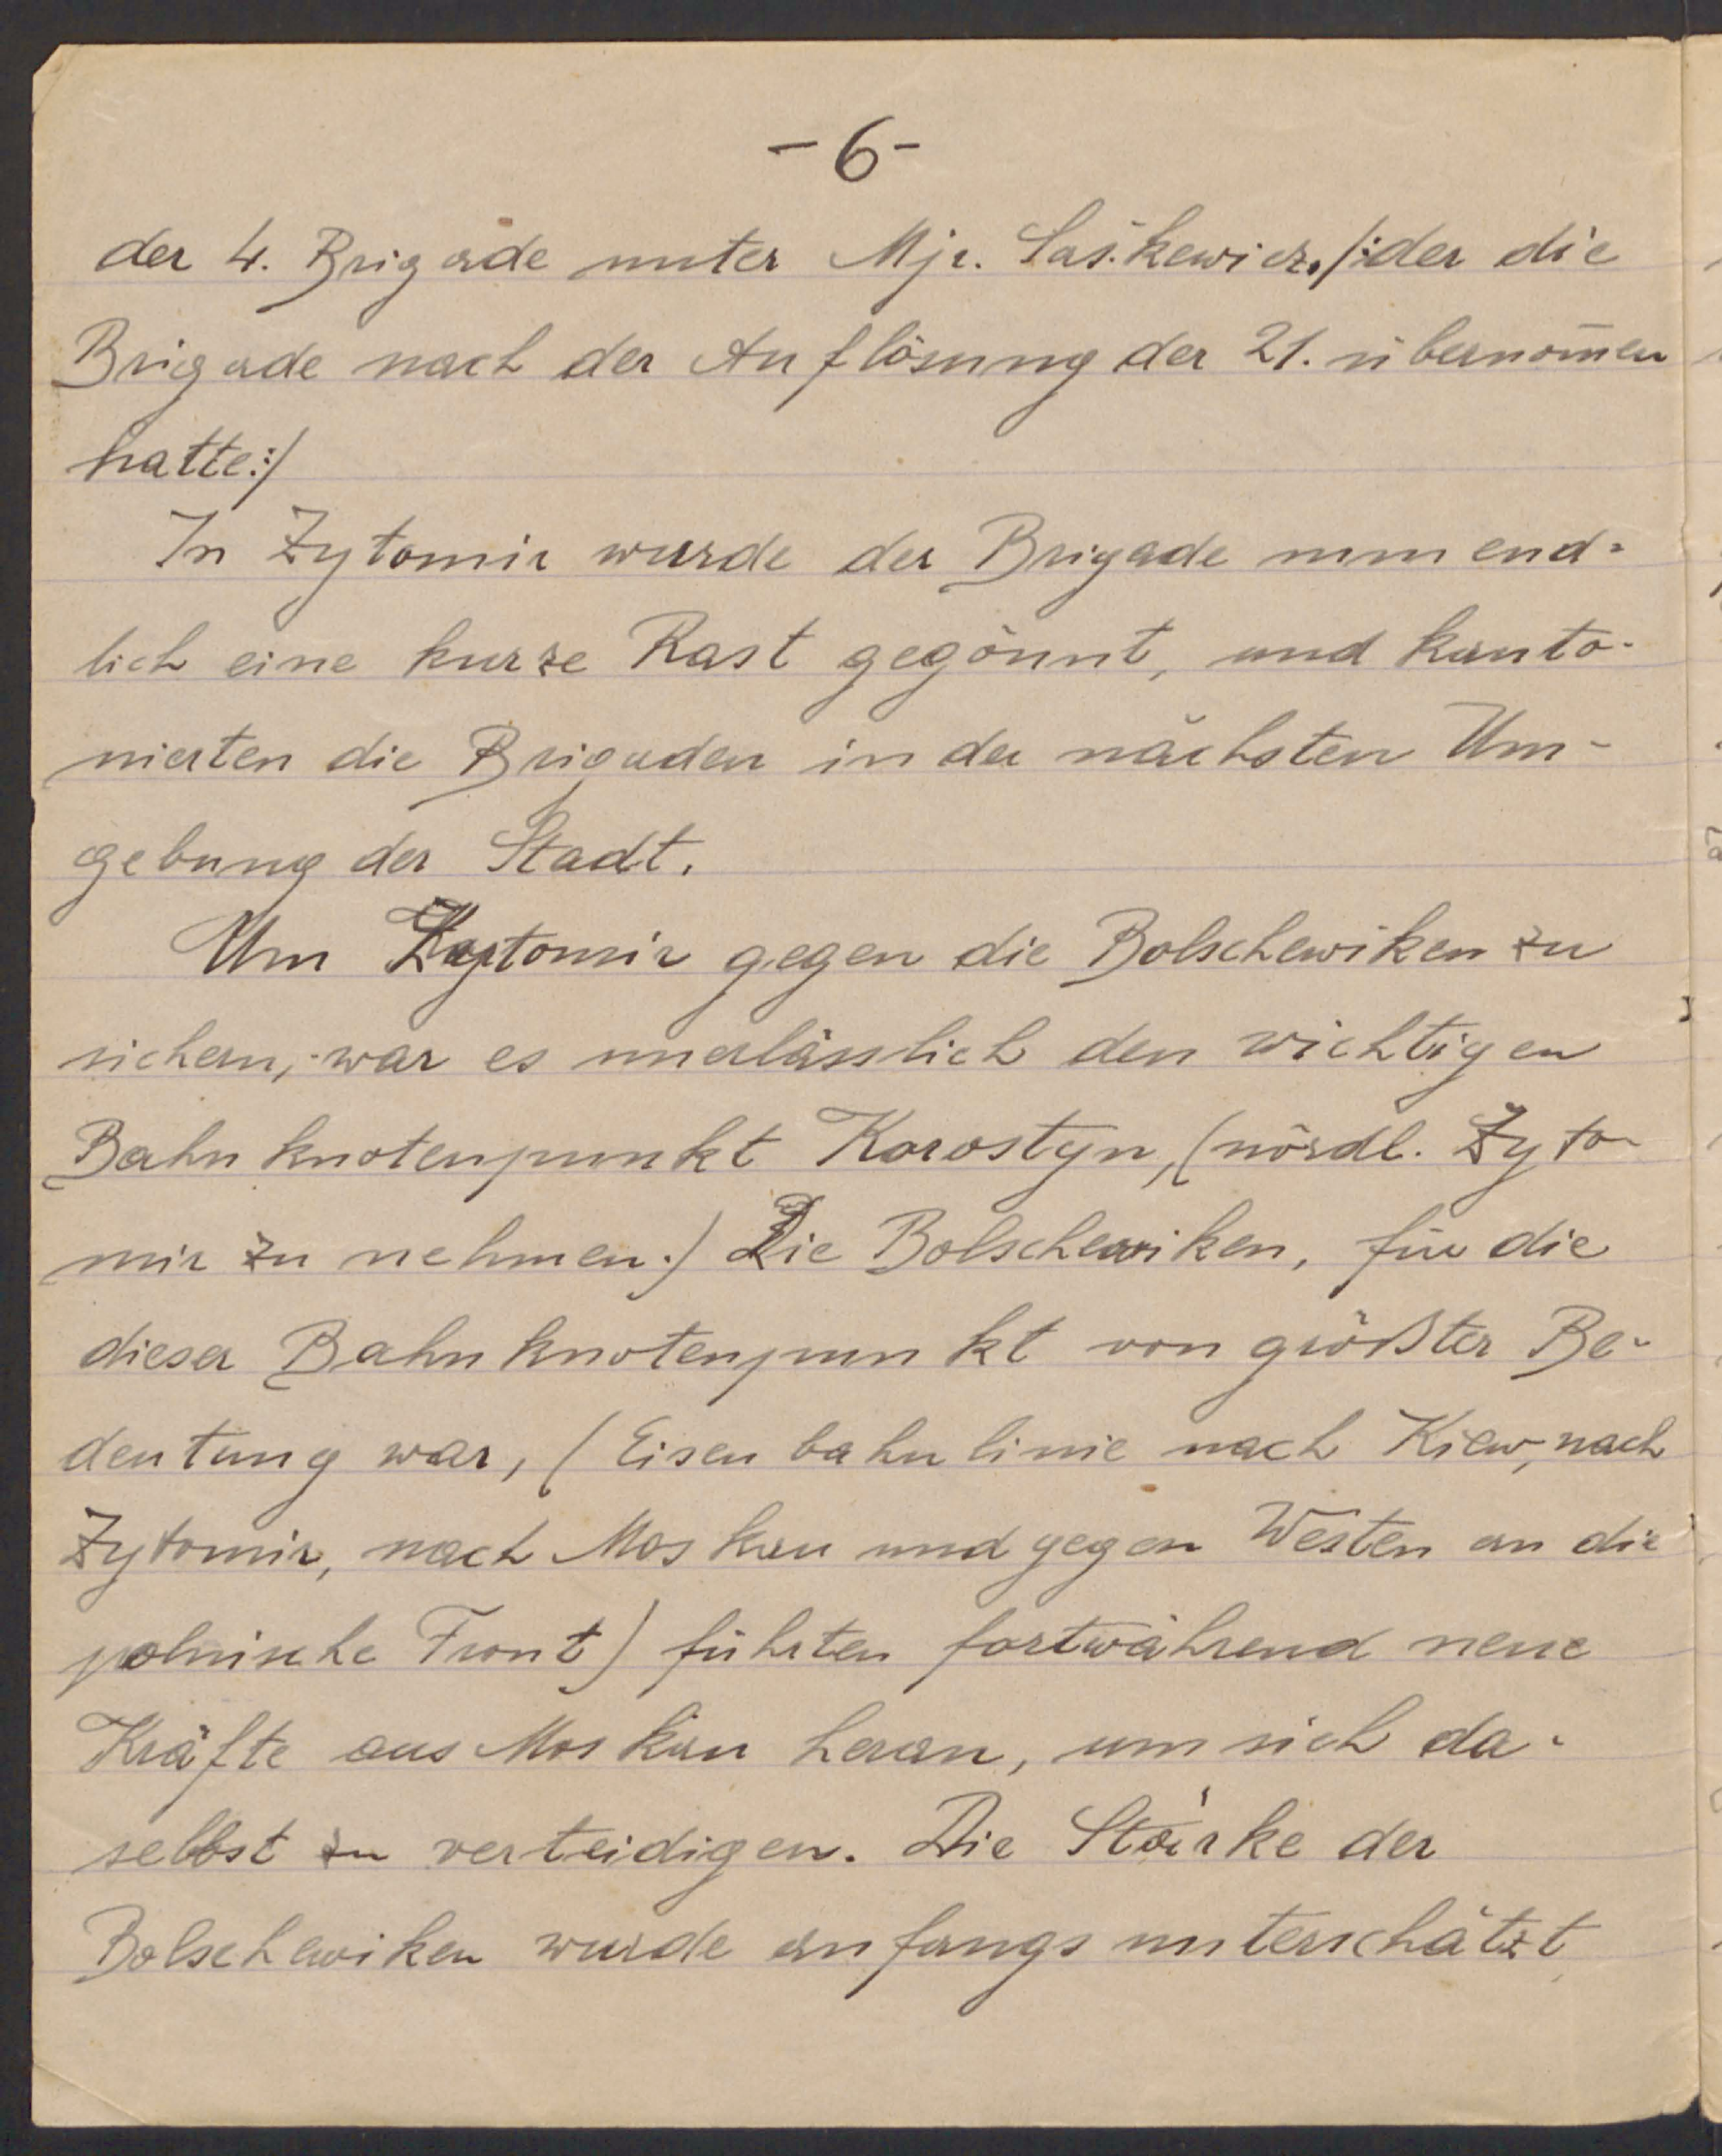 -6-
der 4. Brigade unter Mjr. Saškewicz. /:der die
Brigade nach der Auflösung der 21. übernom̄en
hatte:/
In Zytomir wurde der Brigade nun end-
lich eine kurze Rast gegönnt, und kanto-
nierten die Brigaden in der nächsten Um-
gebung der Stadt.
Um Zytomir gegen die Bolschewiken zu
sichern, war es unerlässlich den wichtigen
Bahnknotenpunkt Korostyn, (nördl. Zyto-
mir zu nehmen.) Die Bolschewiken, für die
dieser Bahnknotenpunkt von größter Be-
deutung war, (Eisenbahnlinie nach Kiew, nach
Zytomir, nach Moskau und gegen Westen an die
polnische Front) führten fortwährend neue
Kräfte aus Moskau heran, um sich da-
selbst zu verteidigen. Die Stärke der
Bolschewiken wurde anfangs unterschätzt